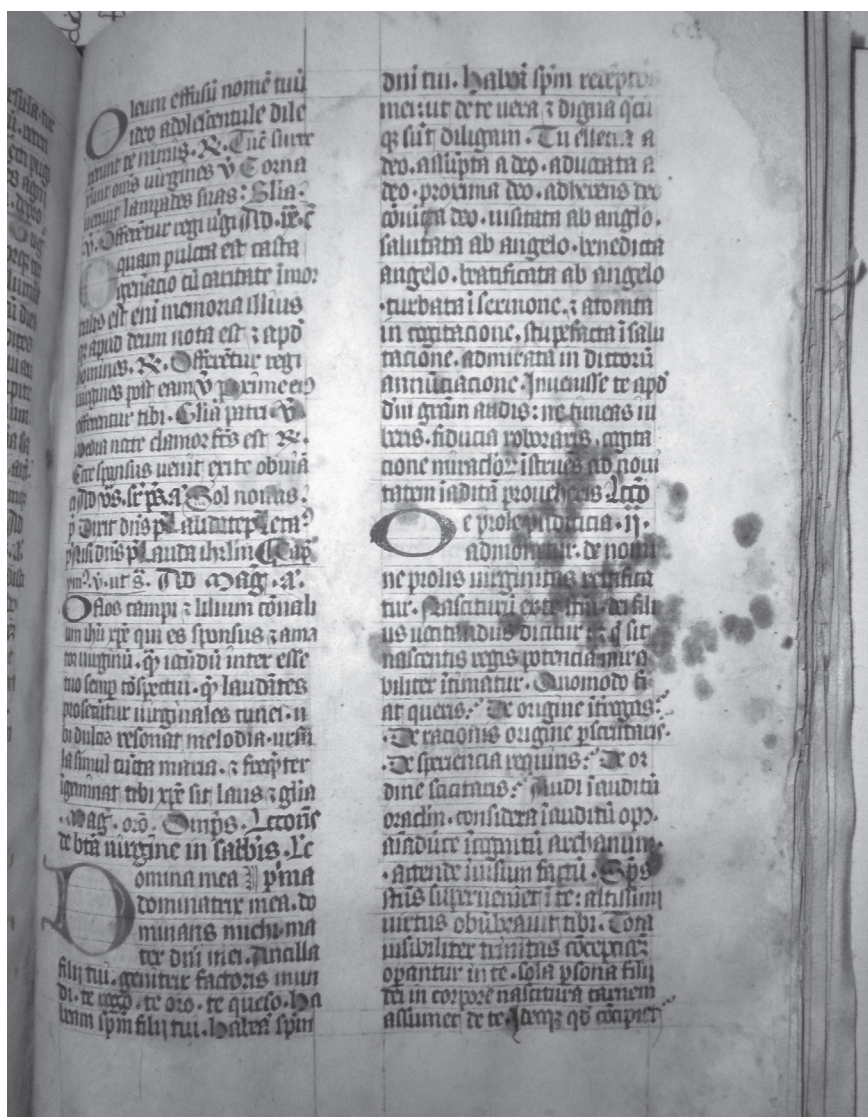 Oleum effusū nomē tuū
ideo adolescentule dile
xerunt te nimis. R. Tūc surre
xerunt om̄s uirgines v̄ Corna
uerunt lampades suas: Glīa.
v. Offerētur regi
quam pulcra est casta
gen̄acio cū caritate īmor
talis est enī memoria illius
qr apud deum nota est ⁊ apd̄
homines. R. Offerētur regi
uirgines post eam v̄ Prime eiꝰ
offerentur tibi. Glīa patri v̄
Media nocte clamor fcs̄ est R.
Ecce sponsus uenit exite obuiā
Sol
Dixit dn̄s Laudate
Lauda ihrlm̄
v. ut s̄. Ad Mag. a.
O flos campi ⁊ lilium cōuall
um ihū xp̄e qui es sponsus ⁊ ama
tor uirginū. inter esse
tuo semp cōspectui. laudātes
uirginales. u
bi dulcis resonat melodia. ursu
la simul cūcta maria. ⁊
īgeminat tibi xp̄e sit laus ⁊ glīa
Mag. orō. Lectoīe
de btā uirgine in sabbīs. Le
Domina mea p̄ma
dominatrix mea. do
minans michi. ma
ter dn̄i mei. Ancilla
filij tui. genitrix factoris mun
di. te rogo. te oro. te queso. ha
beam sp̄m filij tui. habeā sp̄m
dn̄i tui. habeā sp̄m
mei: ut de te uera ⁊ digna
sūt diligam. Tu electa a
deo. assūpta a deo. aduocata a
deo. proxima deo. adherens deo
cōiūcta deo. uisitata ab angelo.
salutata ab angelo. benedicta
angelo. beatificata ab angelo
.turbata ī sermone. ⁊ atonita
in cogitacione. stupefacta ī salu
tacione. admirata in dictorū
annūciacione. Inuenisse te apd̄
dm̄ grām audis: ne timeas iu
beris. fiducia roboraris. cogita
cione miraclor̄ īstrueris ad noui
tatem īauditā proueheris Lcc̄o
De prole pudicicia .ij.
admonetur. de nomi
ne prolis uirginitas certifica
tur. Nasciturū ex te scm̄. dei fili
us uocandus dicitur: ⁊ q̄ sit
nascentis regis potencia mira
biliter ītimatur. Quomodo fi
at queris: De origine ītrogas:
.De racionis origine pscrutaris.
.De speriencia requiris: De or
dine sciscitaris: Audi īauditū
oraclm̄. considera īauditū opꝰ.
aīaduerte īcognitū archanum.
.attende īuisum factū. Sp̄s
scūs superueniet ī te: altissimi
uirtus obūbrauit tibi. Tota
īuisibiliter trinitas
operantur in te. sola psona filij
dei in corpore nascitura carnem
assumet de te. Ideoq̄ qd̄ cōcipiet